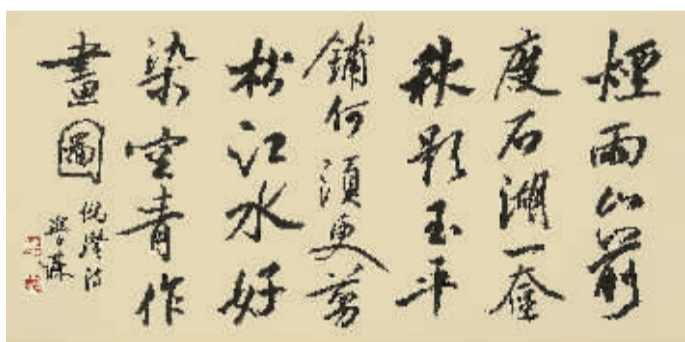 煙雨山前
度石湖一奩
秋影玉平
鋪何須更剪
松江水好
染空青作
畫圖
倪瓚詩